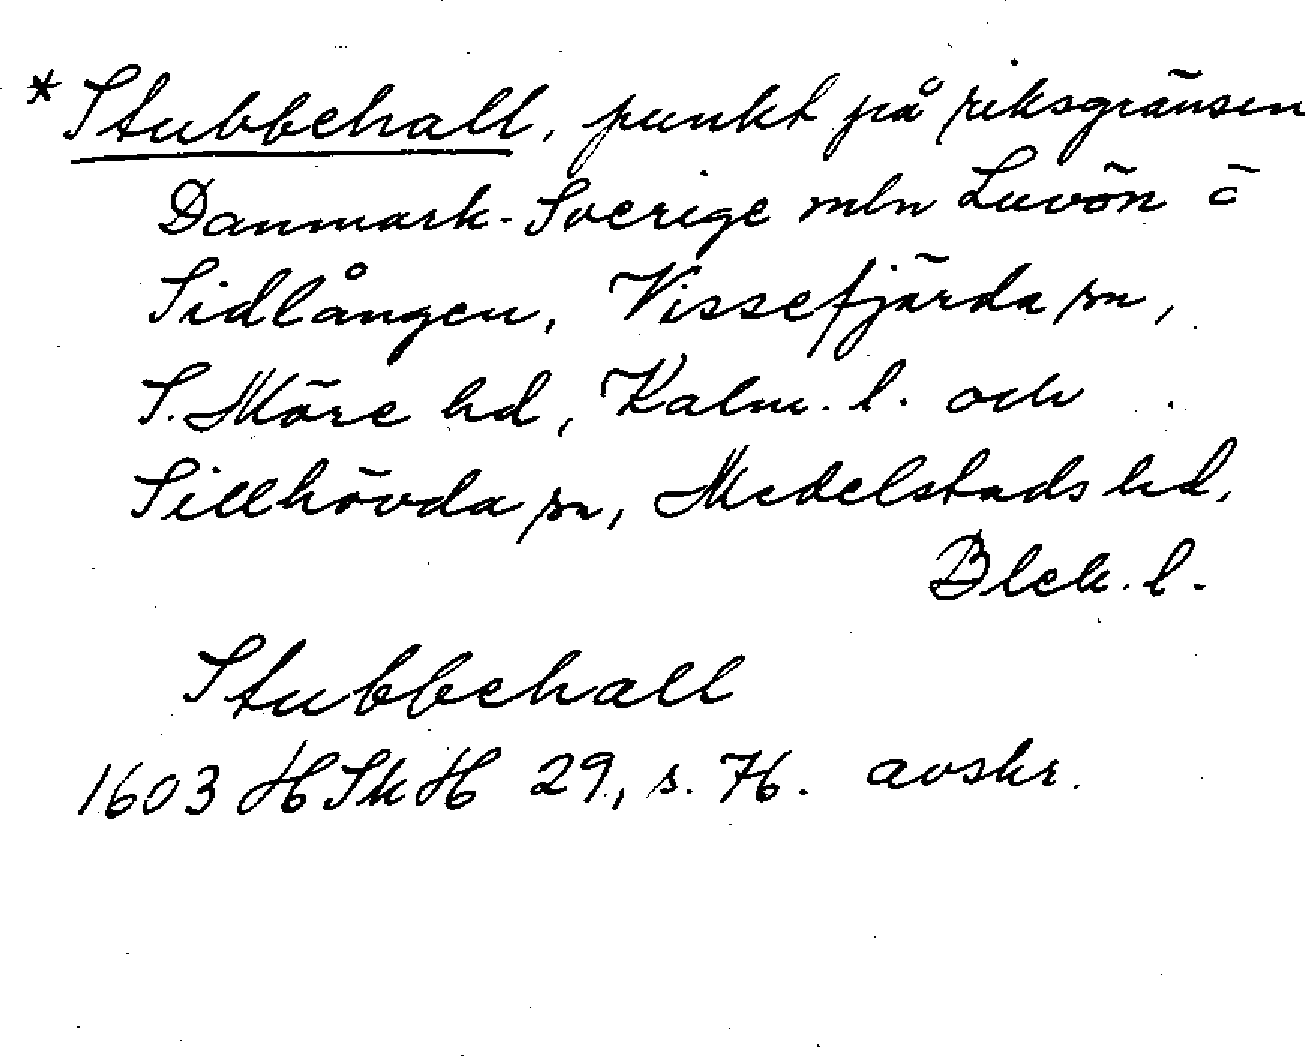 * Stubbehall, punkt på riksgränsen
Danmark-Sverige mln Luvön o
Sidlången, Vissefjärda sn,
S. Möre hd, Kalm. l. och
Sillhövda sn, Medelstads hd,
Blek. l.
Stubbehall
1603 HSkH 29, s. 76. avskr.